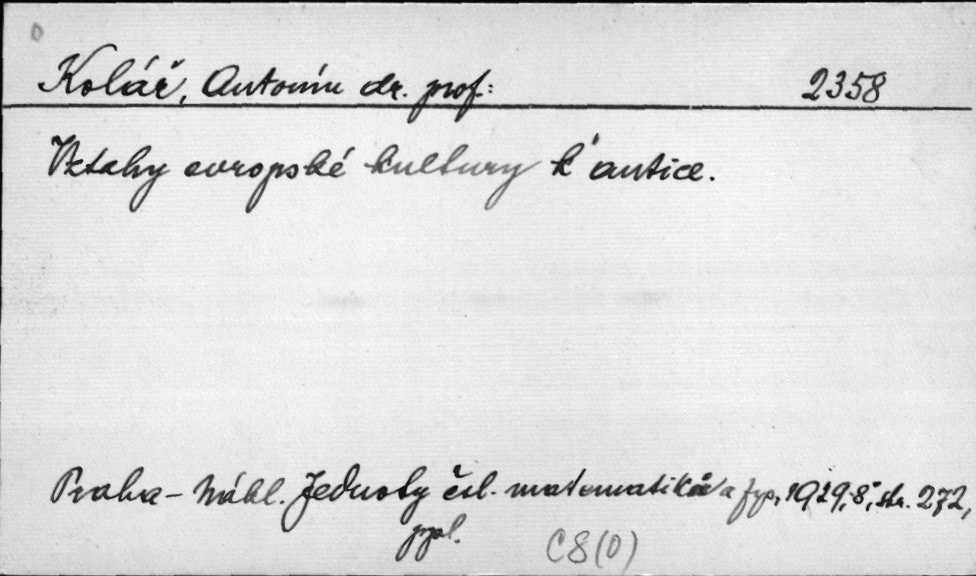 0
Kolář, Antonín dr. prof: 2358
Vztahy evropské kultury k antice.
Praha - Nákl. Jednoty čsl. matematiků a fys., 1929, 8°, str. 272,
ppl.
C8(0)